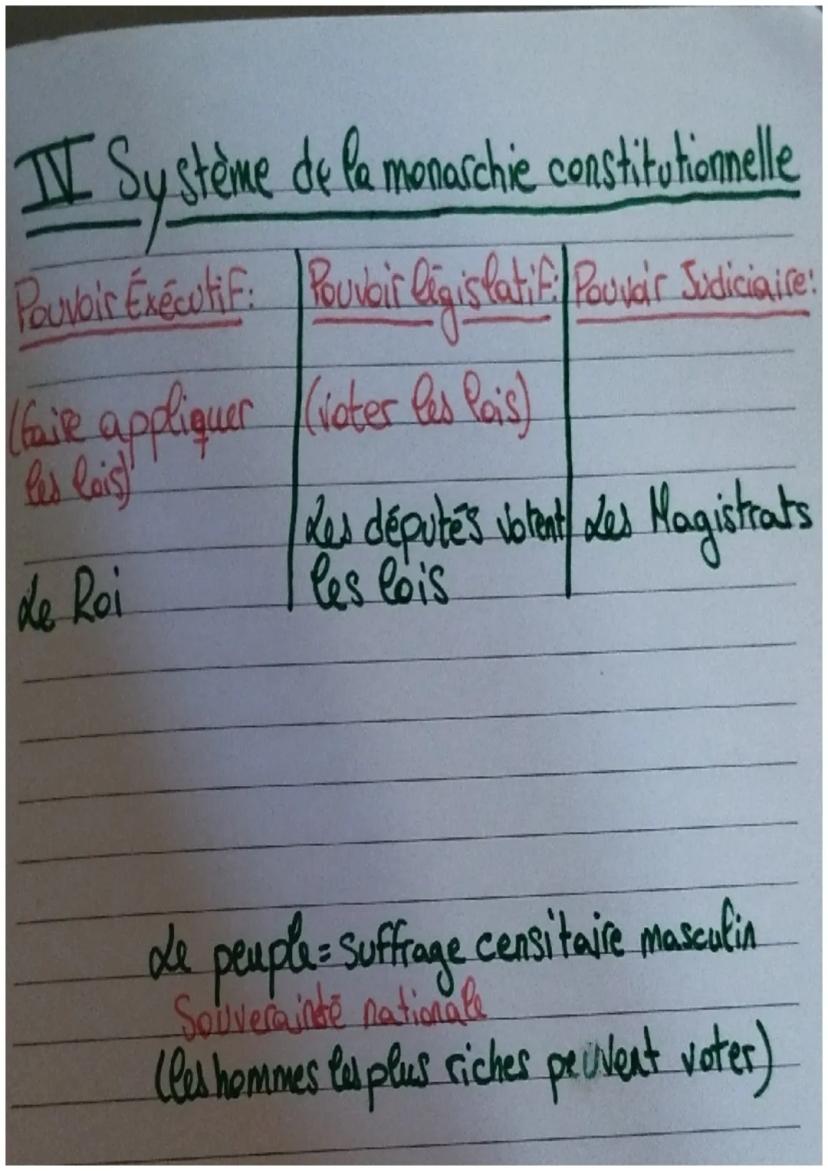 IV Système de la monarchie constitutionnelle
Pouvoir Éxécutif:
(faire appliquer
les lois)
Le Roi
Pouvoir législatif:
(voter les lois)
Les députés votent
les lois
Pouvoir Judiciaire:
Les Magistrats
Le peuple = suffrage censitaire masculin
Souverainté nationale
(les hommes les plus riches peuvent voter)